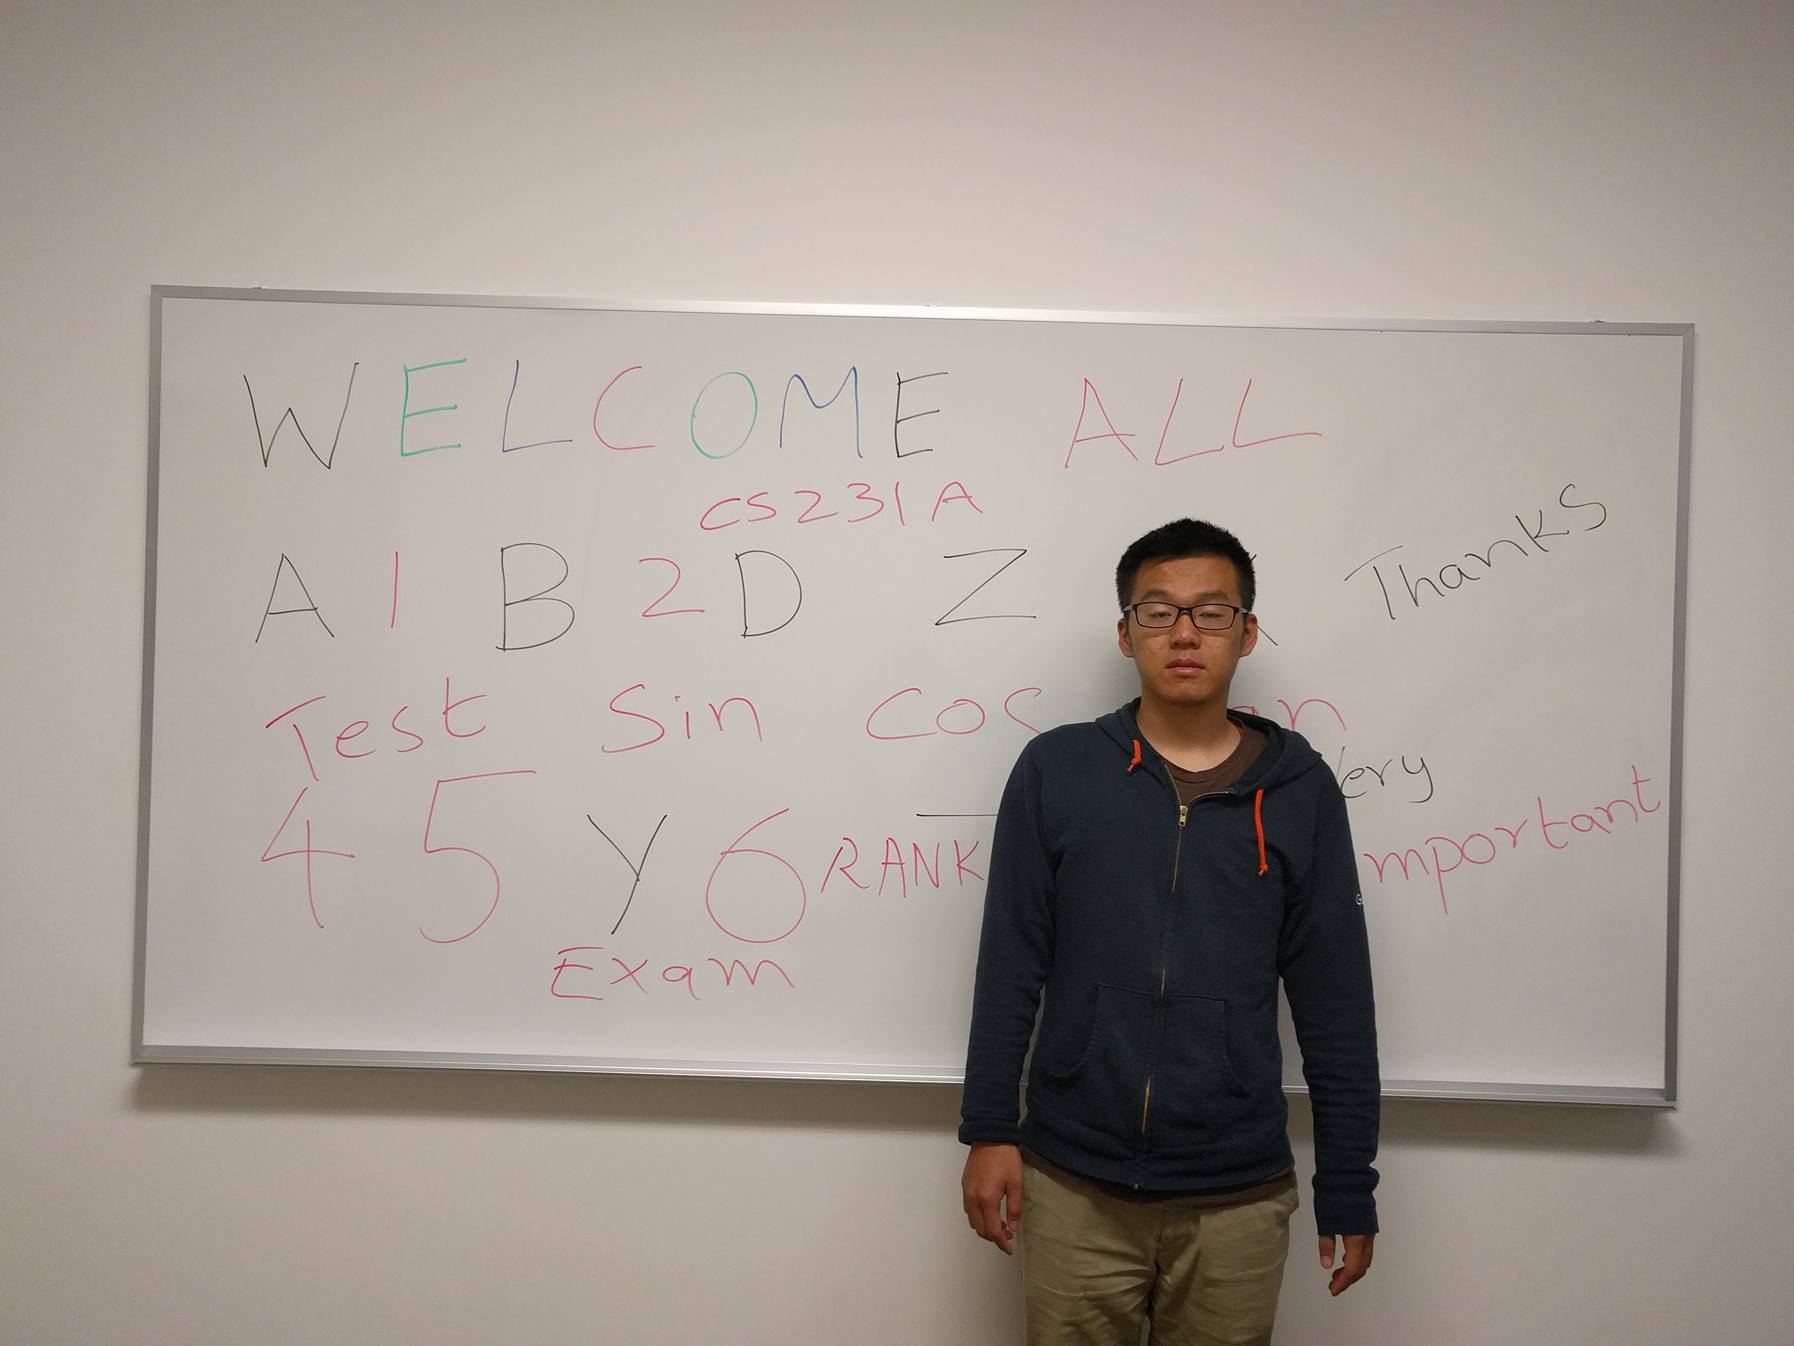 WELCOME ALL
CS231A
A 1 B 2 D Z
Thanks
Test Sin Cos
very
4 5 Y 6 RANK
important
Exam